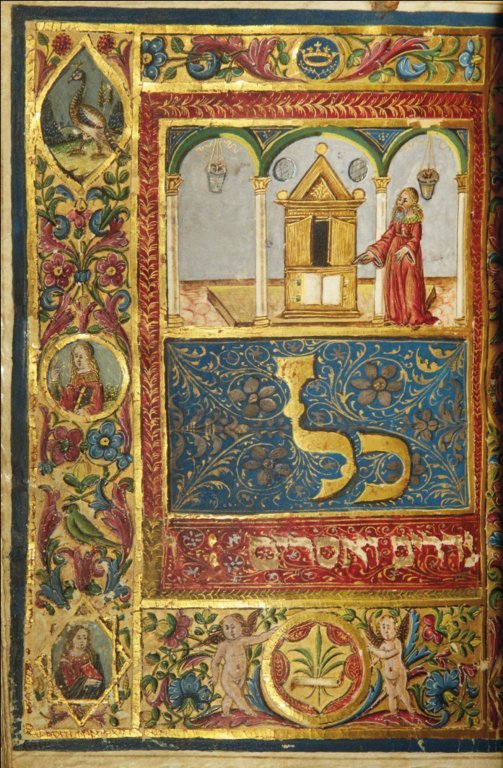 כל
נדרים ואסרים